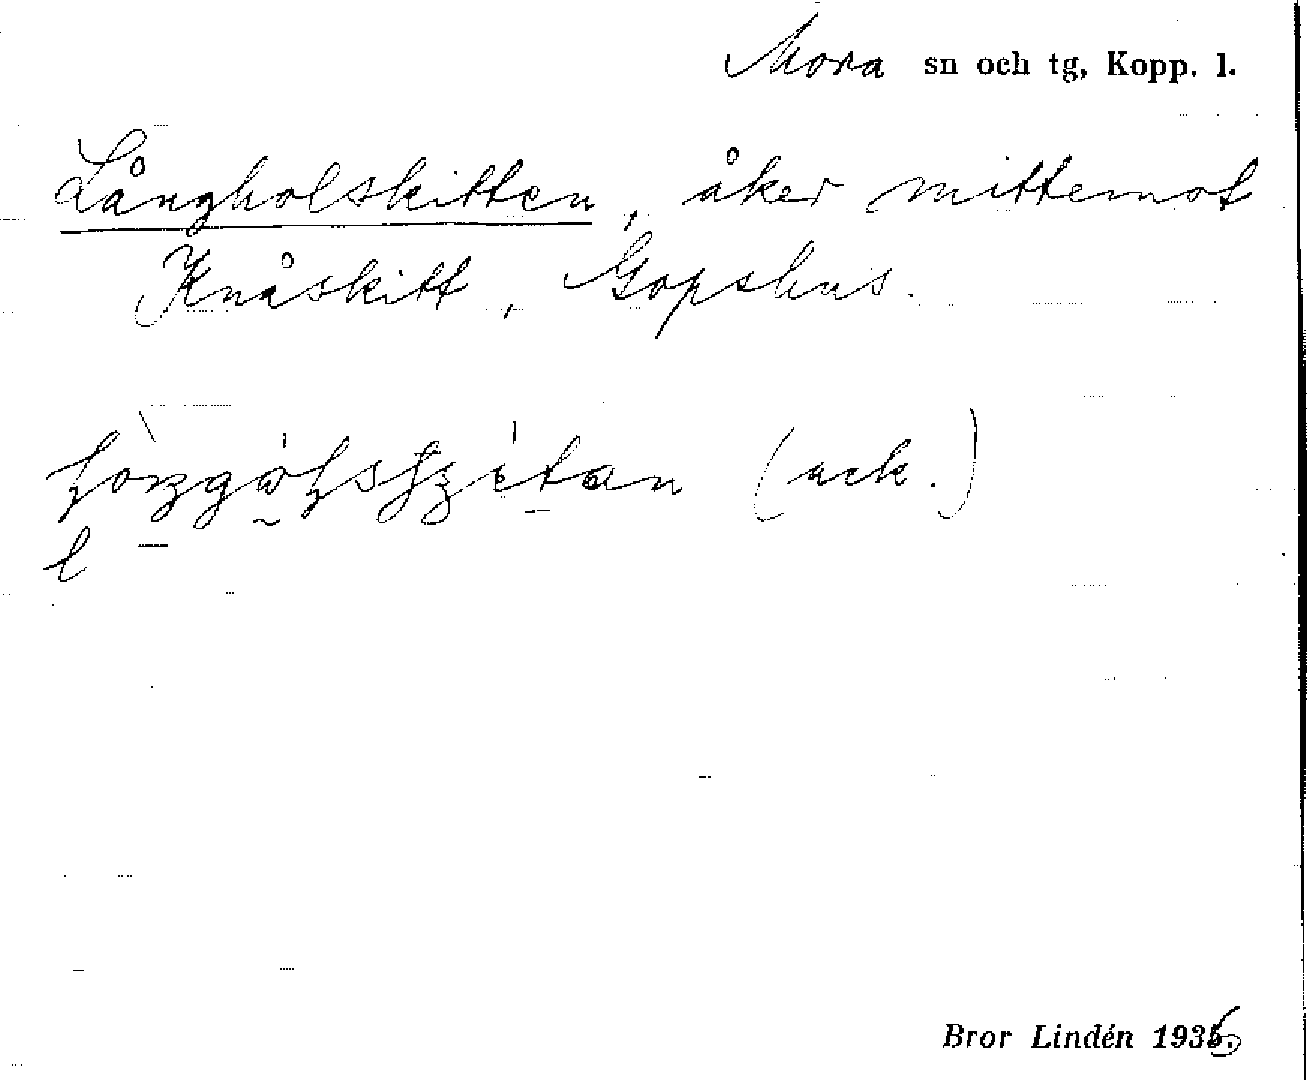 Mora sn och tg, Kopp. l.
Långholskitten, åker mittemot
Knåskitt, Gopshus.
(ack.)
l
Bror Lindén 1936.